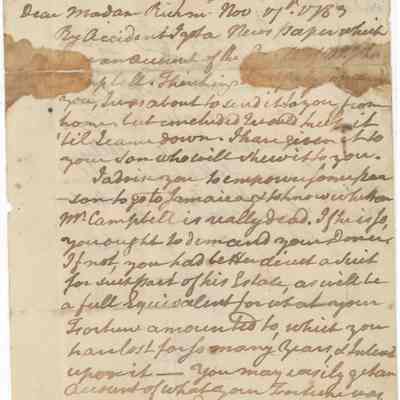 Dear Madam Richm. Nov 17th 1783
By Accident I got a News paper which
an account of the
Thinking
you, I was about to send it to you from
home, but concluded to
'til I came down. I have given it to
your Son who will shew it to you.
I advise you to empower some per
son to go to Jamaica & to know whether
Mr. Campbell is really dead. If he is so,
you ought to demand your Dower
If not, you had better direct a Suit
for such part of his Estate, as will be
a full Equivalent for what your
Fortune amounted to, which you
have lost for so many Years, & Interest
upon it — You may easily get an
Account of what your Fortune was